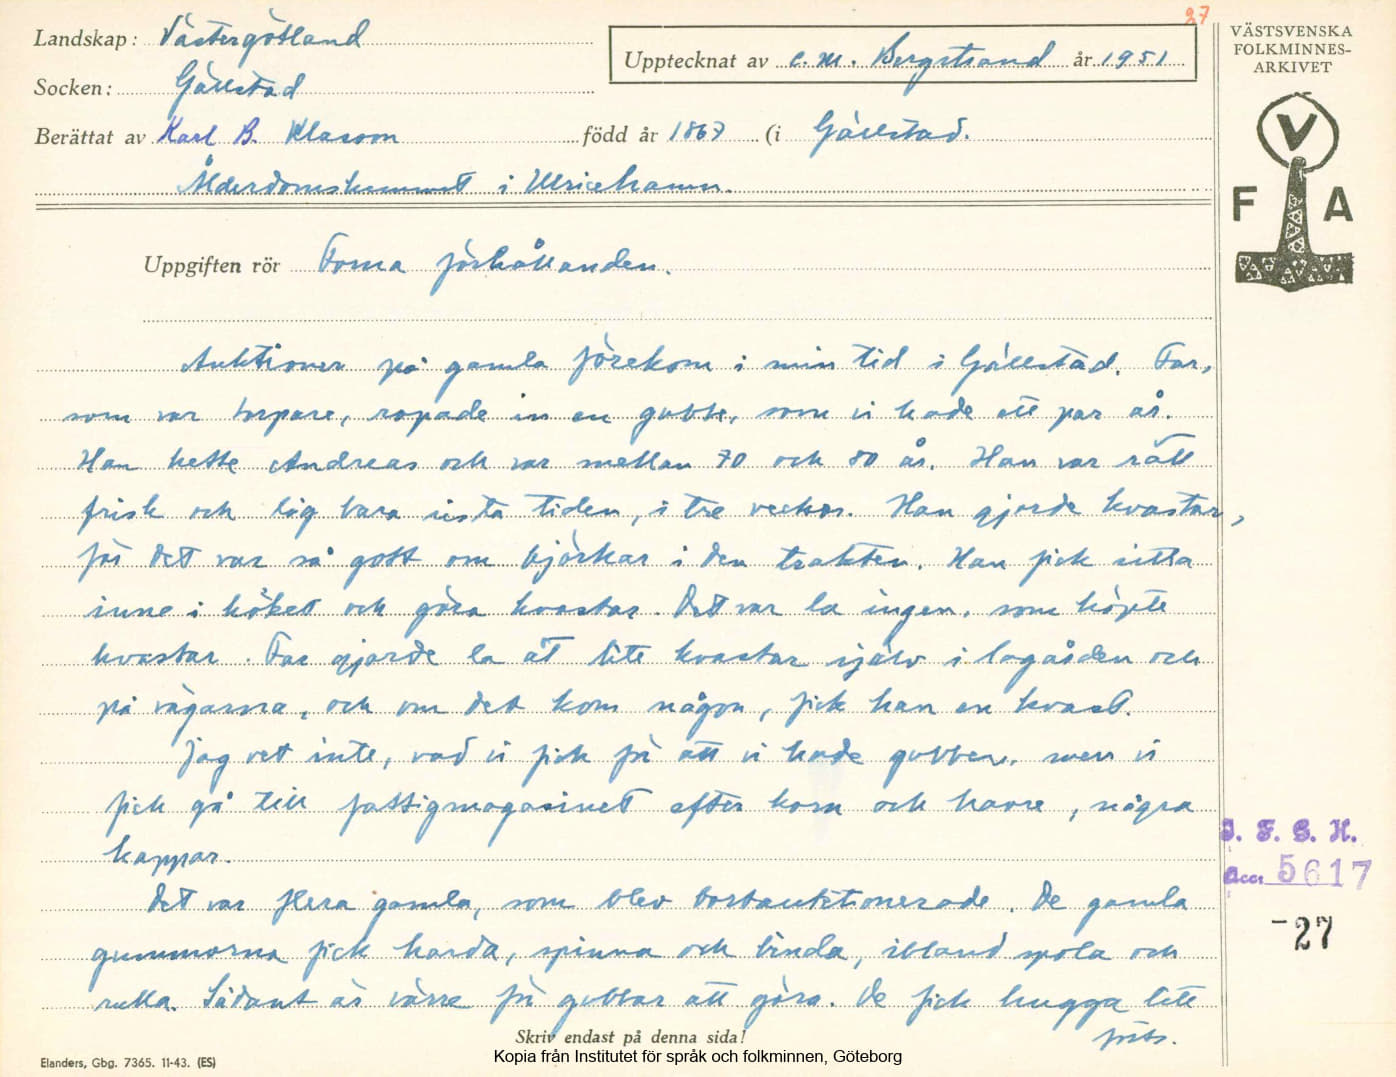 27
Landskap: Västergötland
Socken: Gällstad
Berättat av Karl B. Klasson född år 1867 (i Gällstad.
Ålderdomshemmet i Ulricehamn.
Upptecknat av C. M. Bergstrand år 1951
VÄSTSVENSKA
FOLKMINNES-
ARKIVET
V
F A
Uppgiften rör Forna förhållanden.
Auktioner på gamla förekom i min tid i Gällstad. Far,
som var torpare, ropade in en gubbe, som vi hade ett par år.
Han hette Andreas och var mellan 70 och 80 år. Han var rätt
frisk och låg bara sista tiden, i tre veckor. Han gjorde kvastar,
för det var så gott om björkar i den trakten. Han fick sitta
inne i köket och göra kvastar. Det var la ingen, som köpte
kvastar. Far gjorde la åt lite kvastar själv i logården och
på vägarna, och om det kom någon, fick han en kvast.
Jag vet inte, vad vi fick för att vi hade gubben, men vi
fick gå till fattigmagasinet efter korn och havre, några
kappar.
Det var flera gamla, som blev bortauktionerade. De gamla
gummorna fick karda, spinna och binda, ibland spola och
rulla. Sådant är värre för gubbar att göra. De fick hugga lite
forts.
I. F. G. H.
Acc. 5617
-27
Skriv endast på denna sida!
Elanders, Gbg. 7365. 11-43. (ES)
Kopia från Institutet för språk och folkminnen, Göteborg